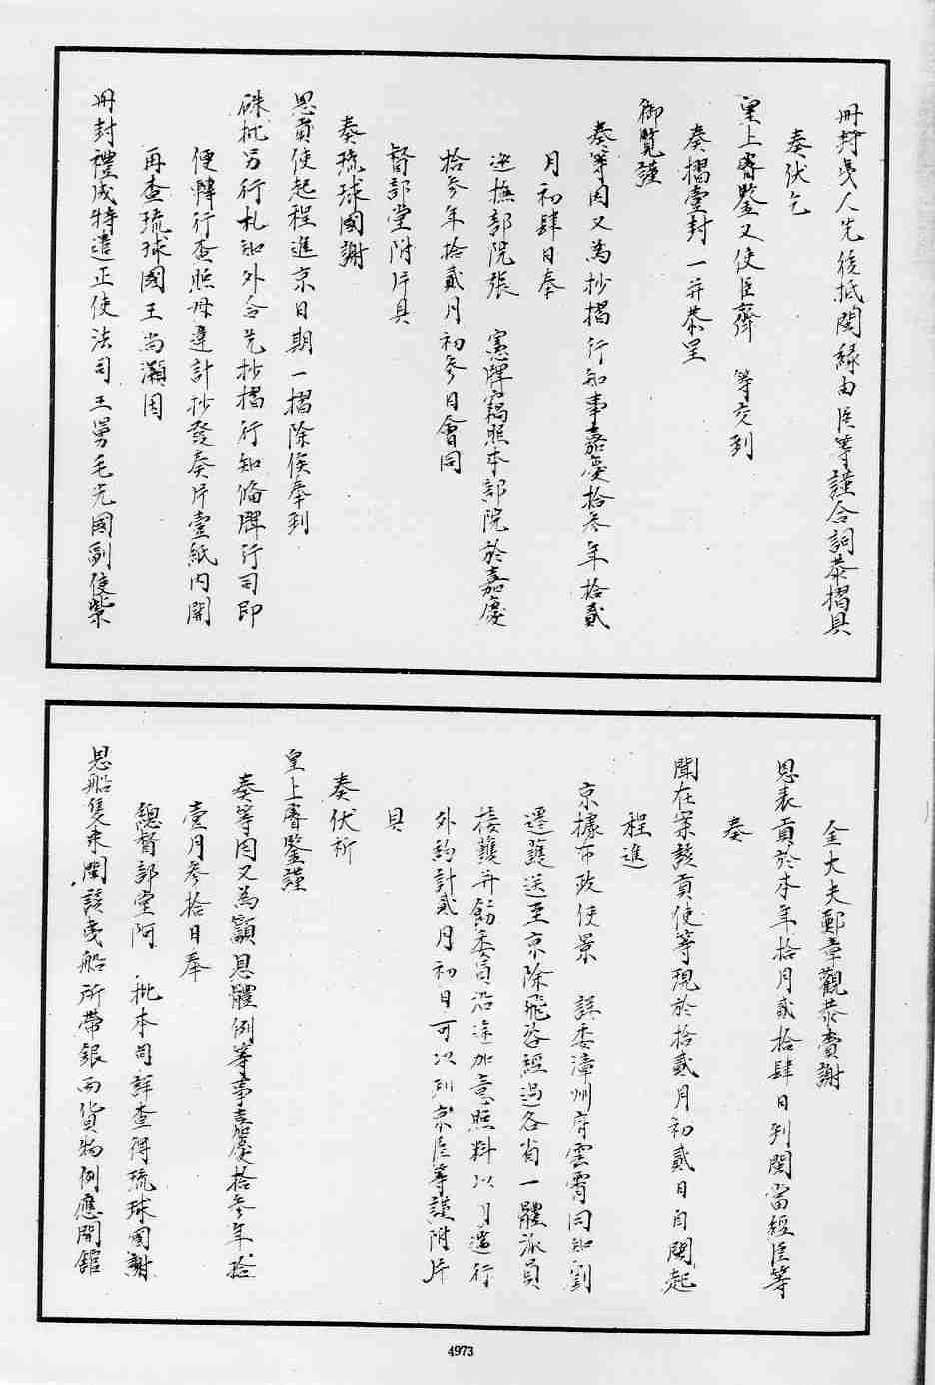 冊封夷人先後抵閩緣由臣等謹合詞恭摺具
奏伏乞
皇上睿鑒又使臣齊　等交到
奏摺壹封一并恭呈
御覽謹
奏等因又為抄摺行知事嘉慶拾叁年拾貳
月初肆日奉
巡撫部院張　憲牌竊照本部院於嘉慶
拾叁年拾貳月初叁日會同
督部堂附片具
奏琉球國謝
恩貢使起程進京日期一摺除俟奉到
硃批另行札知外合先抄摺行知備牌行司即
便轉行查照毋違計抄發奏片壹紙內開
再查琉球國王尚灝因
冊封禮成特遣正使法司王舅毛光國副使紫
金大夫鄭章觀恭賫謝
恩表貢於本年拾月貳拾肆日到閩當經臣等
奏
聞在案該貢使等現於拾貳月初貳日自閩起
程進
京據布政使景　詳委漳州府雲霄同知劉
遷護送至京除飛咨經過各省一體派員
接護并飭委員沿途加意照料以月遄行
外約計貳月初日可以到京臣等謹附片
具
奏伏祈
皇上睿鑒謹
奏等因又為籲恩體例等事嘉慶拾參年拾
壹月參拾日奉
總督部堂阿　批本司詳查得琉球國謝
恩船隻來閩該夷船所帶銀兩貨物例應開館
4973